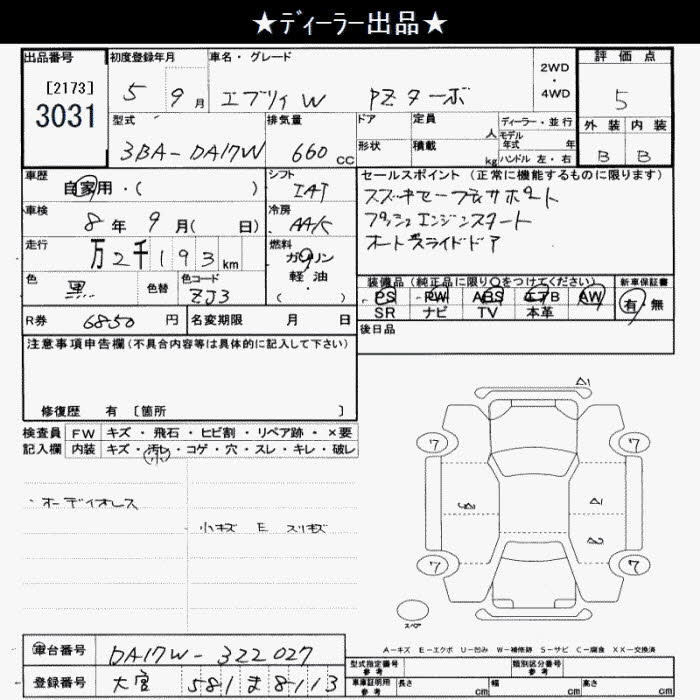 ★ディーラー出品★
出品番号
[2173]
3031
初度登録年月
5 9 月
車名・グレード
エブリィW PZターボ
2WD
・
4WD
評価点
5
外装 内装
B B
型式
3BA-DA17W
排気量
660 CC
ドア 定員 人
形状 積載 kg
ディーラー・並行
モデル
年式 年
ハンドル 左・右
車歴
自家用・( )
シフト
IAT
車検
8 年 9 月( 日)
冷房
AAC
走行
万2千193 km
燃料
ガソリン
・
軽油
( )
色
黒
色替
色コード
ZJ3
R券 6850 円
名変期限 月 日
セールスポイント(正常に機能するものに限ります)
スズキセーフティサポート
プッシュエンジンスタート
オートスライドドア
装備品(純正品に限り○をつけてください)
PS PW ABS エアB AW
SR ナビ TV 本革
新車保証書
有 無
後日品
注意事項申告欄(不具合内容等は具体的に記入して下さい)
修復歴 有 〔箇所 〕
検査員 FW キズ・飛石・ヒビ割・リペア跡・×要
記入欄 内装 キズ・汚レ・コゲ・穴・スレ・キレ・破レ
小
・オーディオレス
小キズ E スリキズ
A1
7 7
A1
7 7
スペア
A-キズ E-エクボ U-凹み W-補修跡 S-サビ C-腐食 XX-交換済
車台番号 DA17W-322027
登録番号 大宮 581 ま 8113
型式指定番号
参考
類別区分番号
参考
車庫証明用
参考
長さ cm 幅 cm 高さ cm